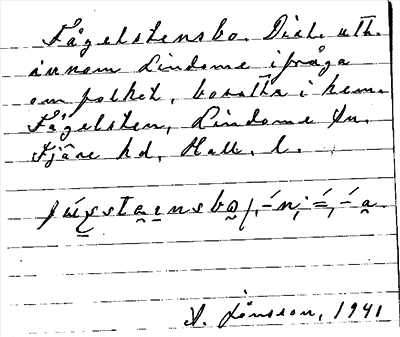 Fågelstensbo. Dial. utt.
innom Lindome ifråga
om folket, bosatta i hem.
Fågelsten, Lindome sn,
Fjäre hd, Hall. l.
A. Jönsson, 1941